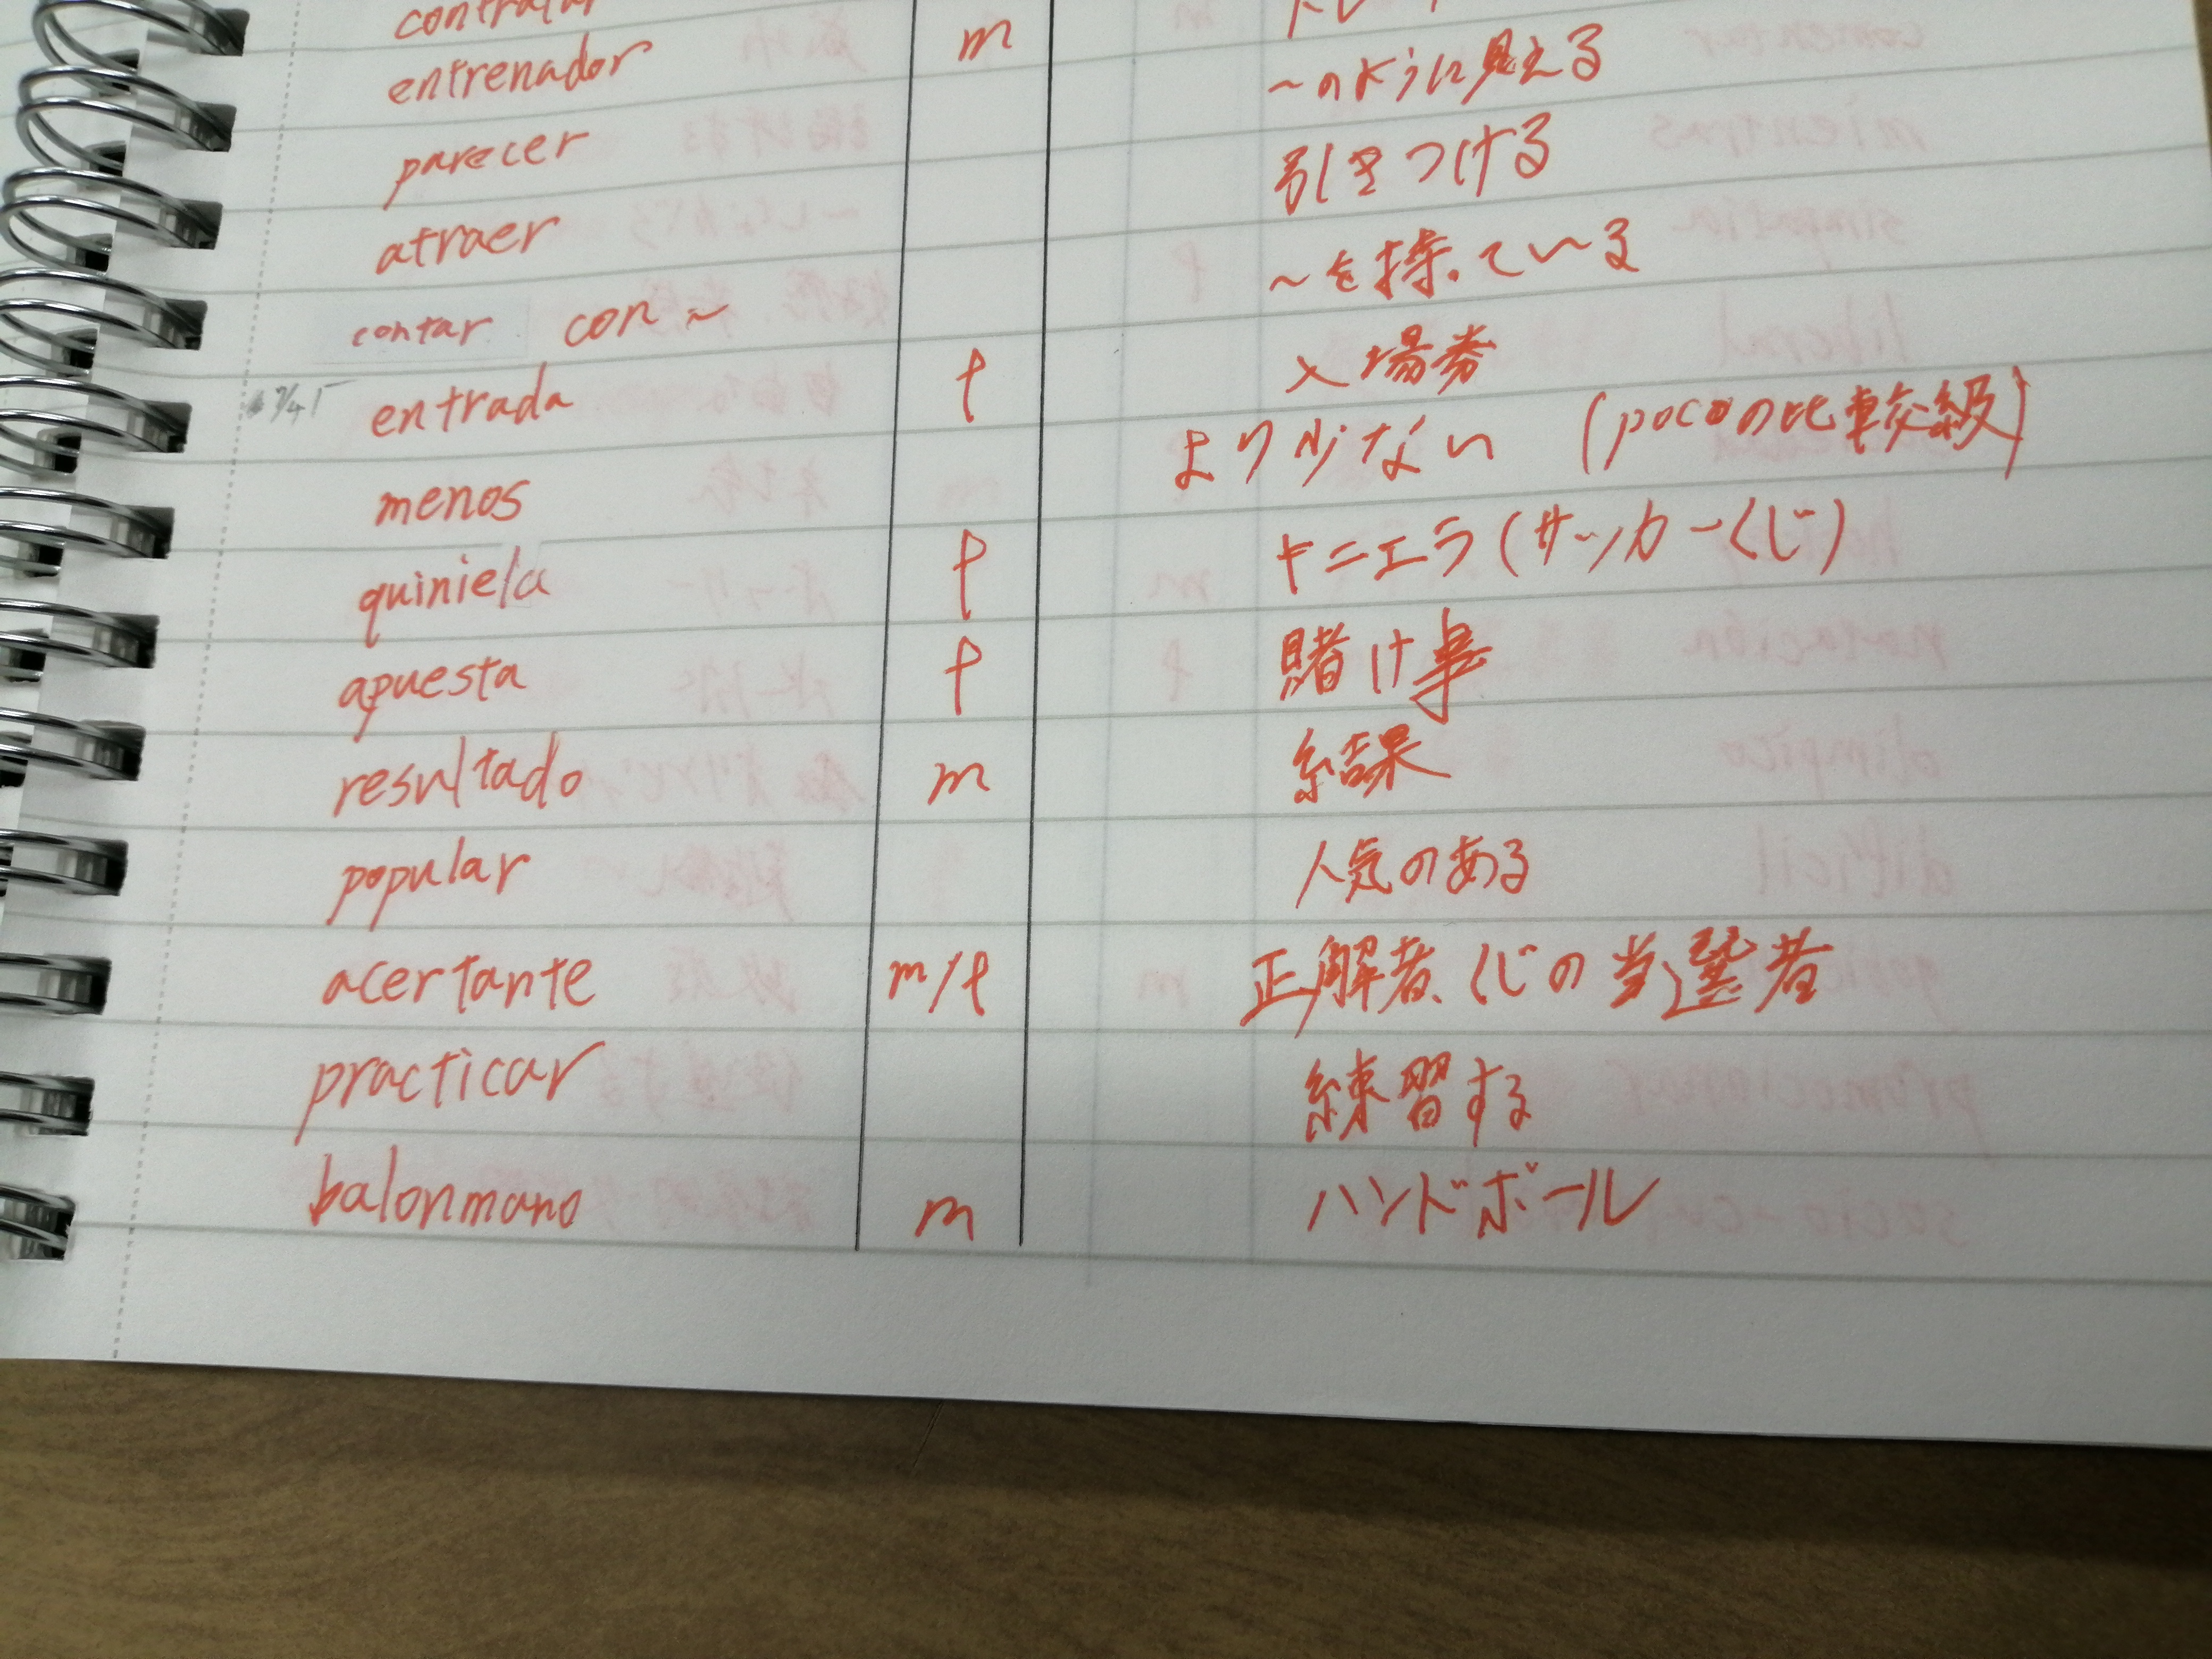 entrenador m
parecer ~のように見える
atraer 引きつける
contar con ~ ~を持っている
entrada f 入場券
menos より少ない (pocoの比較級)
quiniela f キニエラ(サッカーくじ)
apuesta f 賭け事
resultado m 結果
popular 人気のある
acertante m/f 正解者、くじの当選者
practicar 練習する
balonmano m ハンドボール